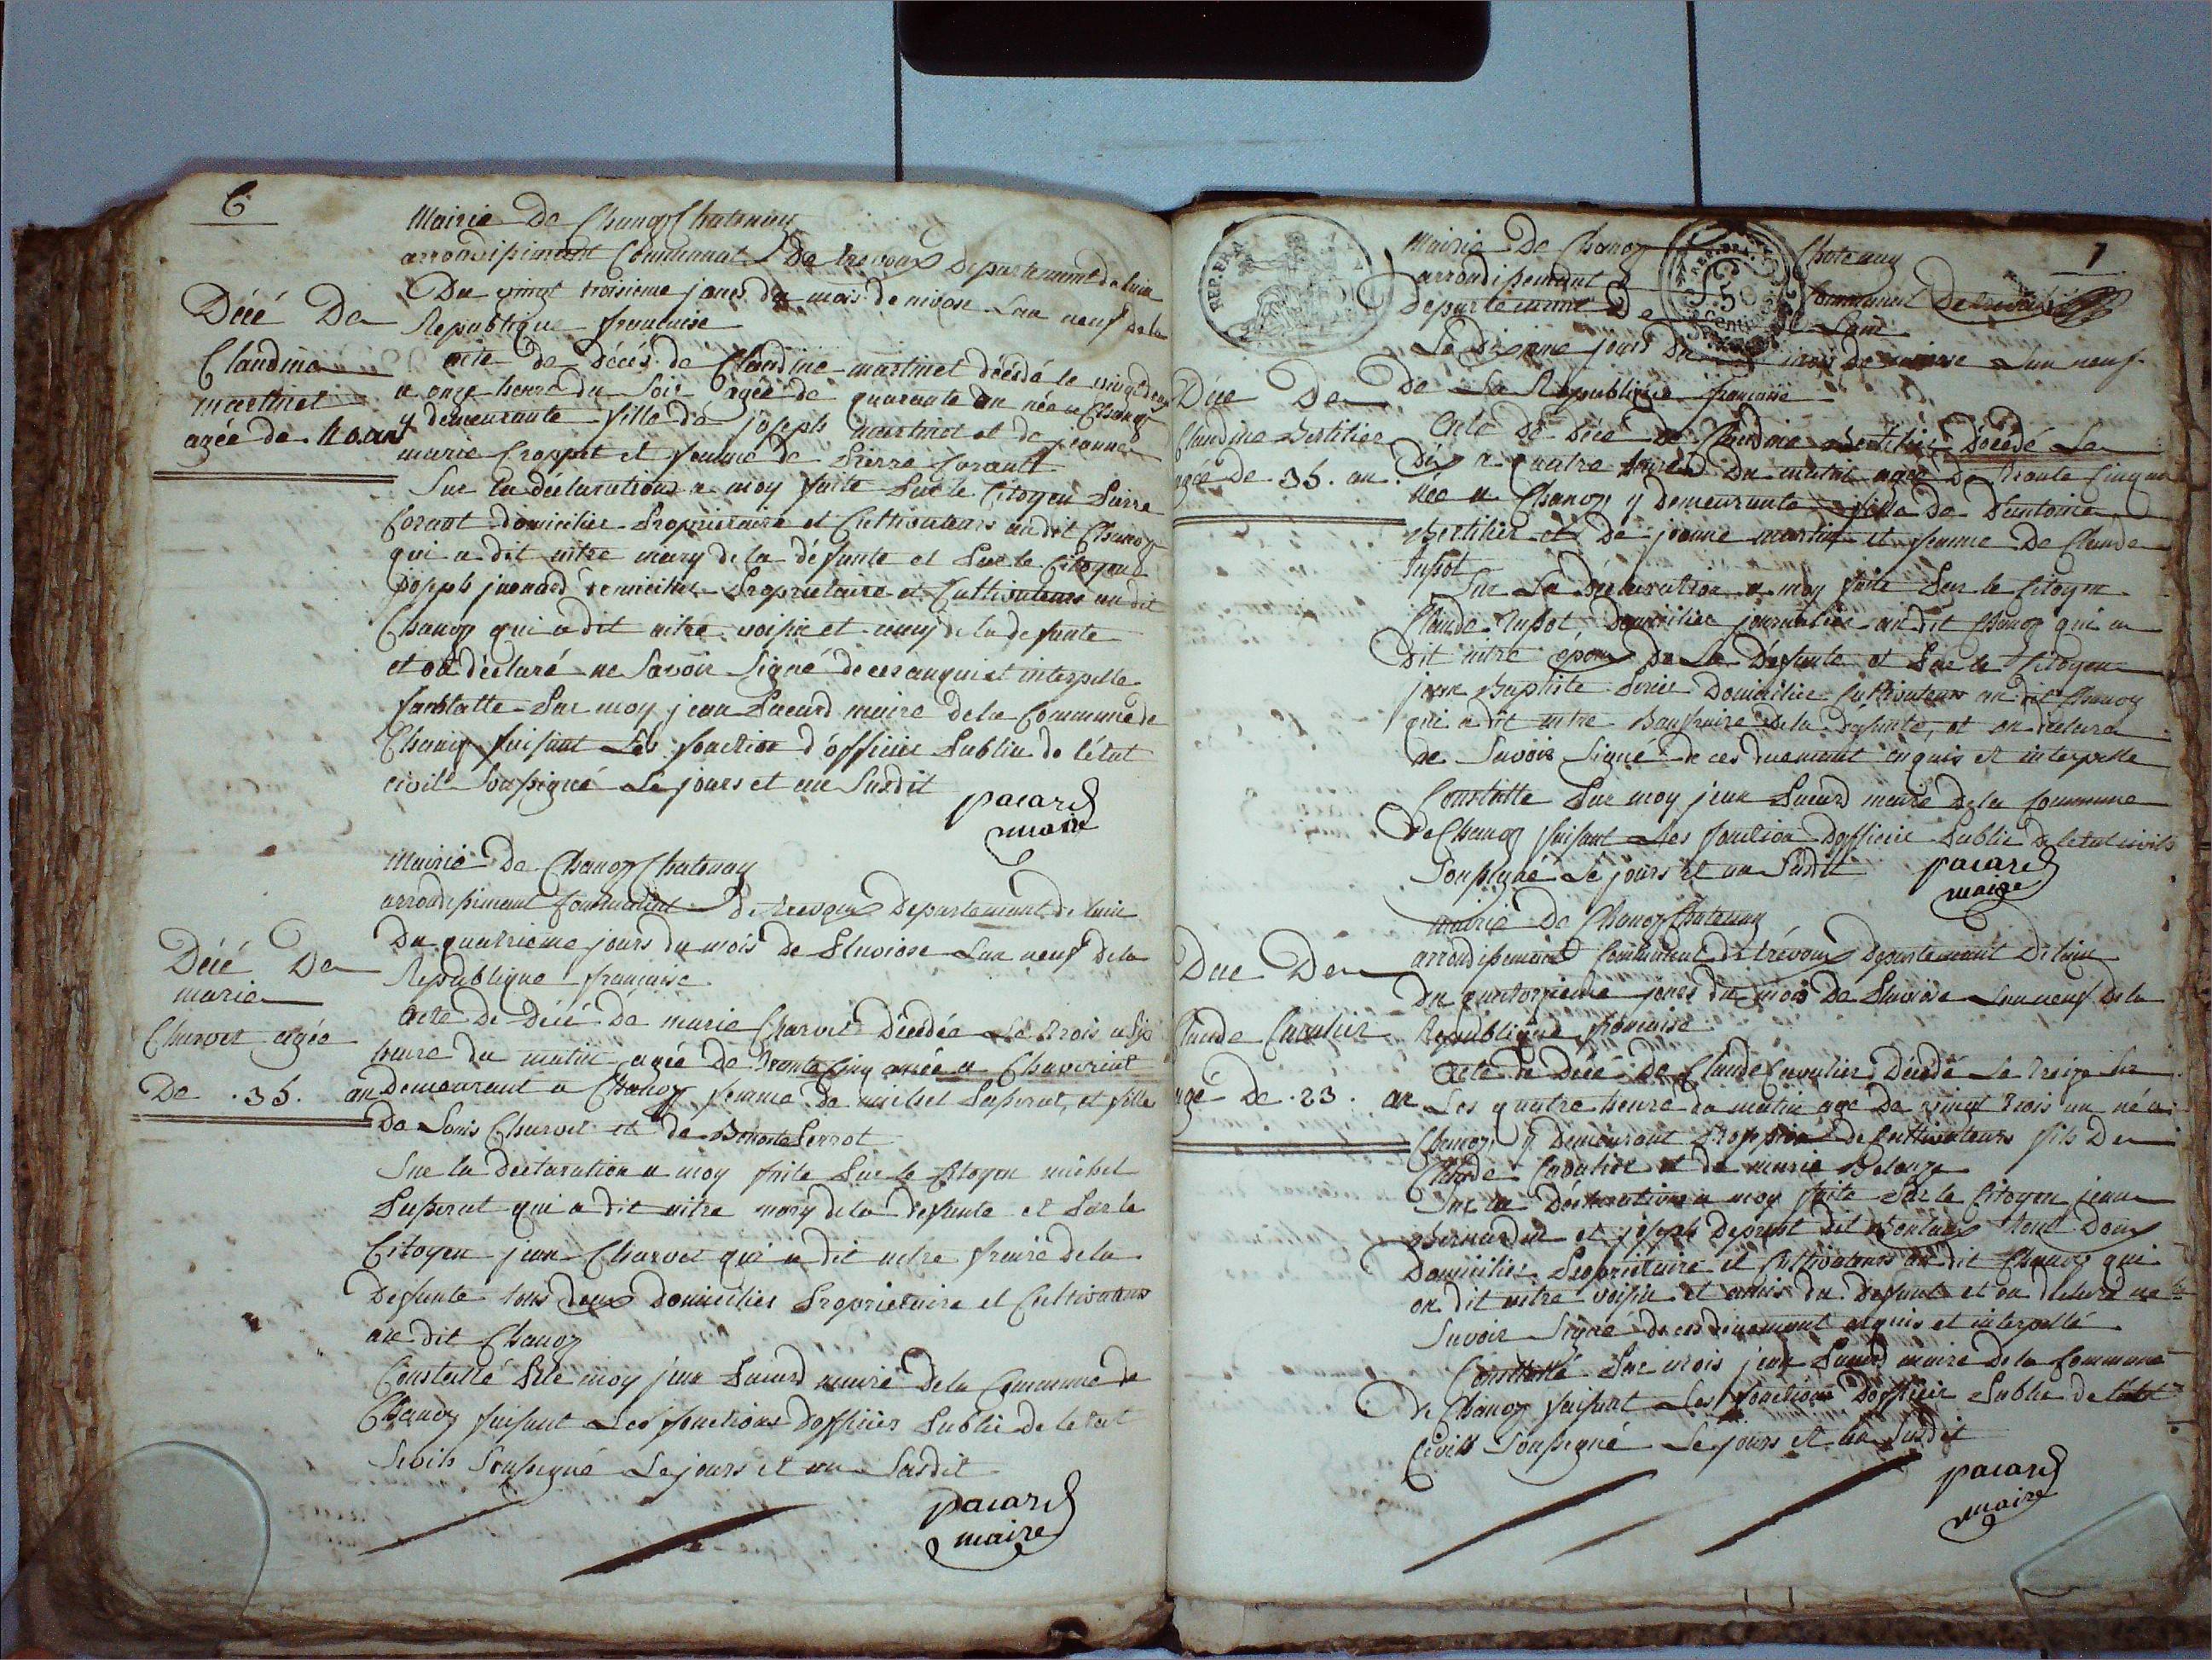 6
Mairie De Chanoz Chatenay
arrondissiment Communnal De trevoux Departement de lain
Du vingt troisieme jours du mois de nivose Lan neuf de la
Republique francaise
Décé De
Claudine
martinet
agée de 40 ans
acte de Décés de Claudine martinet décédé le vingt deux
a onze heure du Soir agée de quarante an née a Chanoz
y demeurante fille de joseph martinet et de jeanne
marie Croppet et femme de Pierre
Sur la déclarations a moy faite Par le Citoyen Pierre
domicilie Propriétaire et Cultivateurs audit Chanoz
qui a dit aitre mary de la défunte et Par le Citoyen
joseph domicilié Propriétaire et Cultivateurs audit
Chanoz qui a dit aitre voisin et amy de la defunte
et on déclaré ne Savoir Signé de ces anquis et interpelle
Constatte Par moy jean Pacard maire de la Commune de
Chanoz faisant Les fonction d'officier Public de l'état
civil Soussigné Le jours et an Susdit
pacard
maire
Mairie De Chanoz Chatenay
arrondissiment Communnal De trevoux Departement de lain
Du quatrieme jours du mois de Pluviose Lan neuf de la
Republique francaise
Décé De
marie
Charvet agée
De .35. an
Acte De Décé De marie Charvet Décédée Le trois a Six
heure du matin agée De trente Cinq an née a Chaveriat
Demeurant a Chanoz femme De michel et fille
De Louis Charvet et de Benoite Perrot
Sur la Declaration a moy faite Par Le Citoyen michel
qui a dit aitre mary de la defunte et Par le
Citoyen jean Charvet qui a dit aitre fraire de la
Defunte tous deux Domicilies Proprietaire et Cultivateurs
au dit Chanoz
Constatté Par moy jean Pacard maire De la Commune de
Chanoz faisant Les fonctions Dofficier Public de letat
Sivils Soussigné Le jours et an Susdit
pacard
maire
7
REP. FRA.
50
Centi
Mairie De Chanoz Chatenay
arrondissement Communnal De trevoux
Departement De Lain
Le Dixieme jours Du mois De nivose Lan neuf
De La Republique francaise
Déce De
Claudine Bertilier
agée de 35. an
Acte De Décé De Claudine Bertilier Décédé Le
Dix a quatre heures Du matin agée De trente Cinq an
née a Chanoz y demeurante fille De Dantoine
Bertilier et De jeanne martin et femme De Claude
Sur La Déclaration a moy faite Par le Citoyen
Claude Domicilier journalier au dit Chanoz qui a
Dit aitre époux De La Défunte et Par le Citoyen
jean Baptiste Domicilie Cultivateurs au dit Chanoz
qui a dit aitre Baufraire de la défunte, et on declaré
ne Savoir Signé de ces duemant enquis et interpelle
Constatte Par moy jean Pacard maire de la Commune
De Chanoz faisant Les fonction Dofficier Public de letat civils
Soussigné Le jours et an Susdit
pacard
maire
mairie De Chanoz Chatenay
arrondissement Communnal De trévoux Departement De lain
Du quatorzieme jours du mois De Pluviose Lan neuf De la
Republique francaise
Dece De
Claude Cavalier
agé De .23. an
Acte De Décé De Claude Cavalier Décédé Le treize Sur
Les quatre heure du matin age De vingt trois an né a
Chanoz y Demeurant Proffession de Cultivateurs fils De
Claude Cavalier et de marie
Sur la Déclarations a moy faite Par le Citoyen jean
Bernardin et joseph dit tout Deux
Domicilies Proprietaire et Cultivateurs au dit Chanoz qui
on dit aitre voisin et amis du Defunt et on declaré ne
Savoir Signé de ces duemant enquis et interpellé
Constatté Par mois jean Pacard maire de la Commune
De Chanoz faisant Les fonctions Dofficier Public de l'état
Civils Soussigné Le jours et an Susdit
pacard
maire